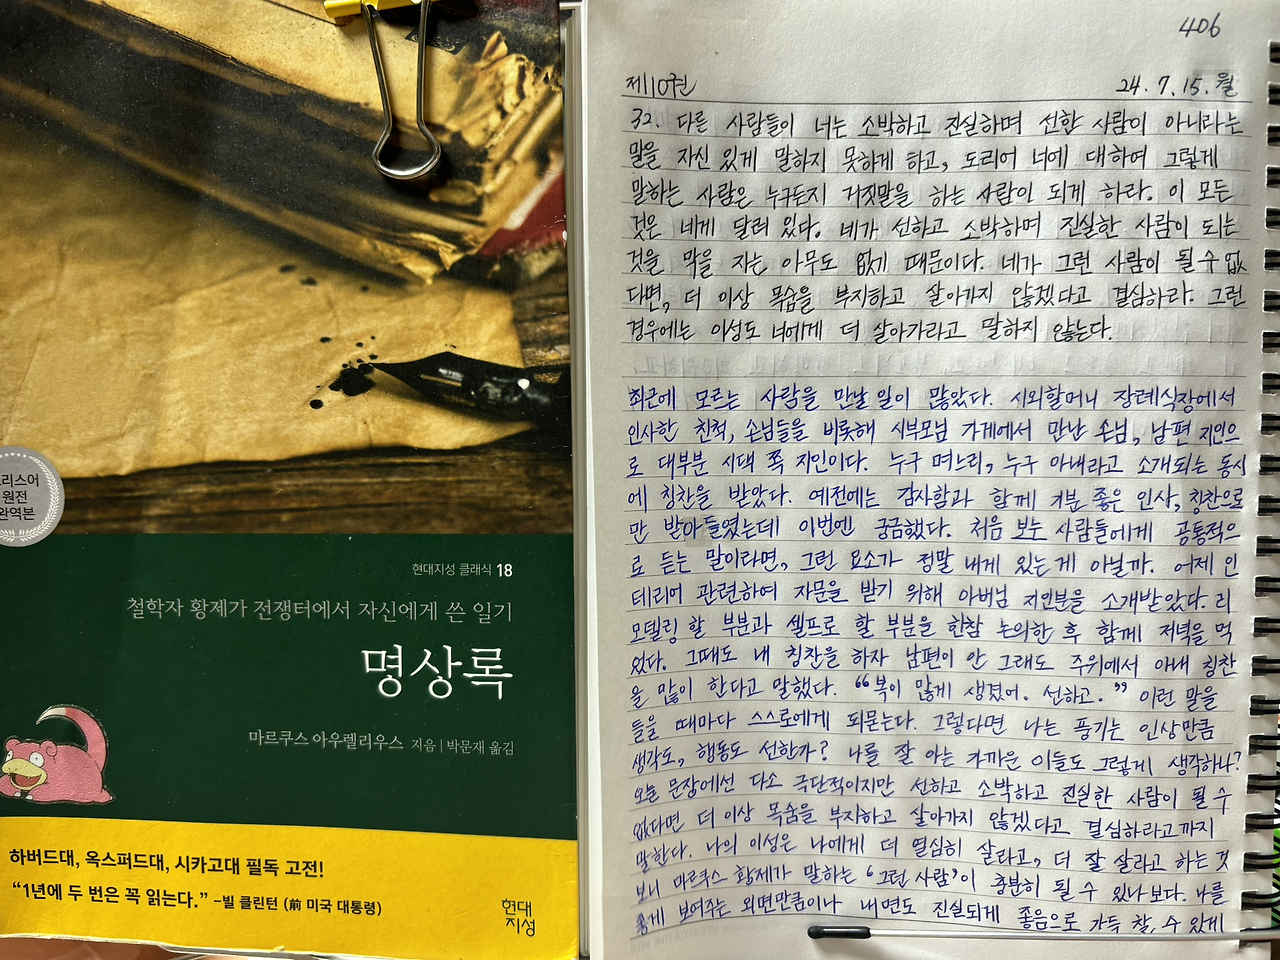 리스어
원전
완역본
현대지성 클래식 18
철학자 황제가 전쟁터에서 자신에게 쓴 일기
명상록
마르쿠스 아우렐리우스 지음 | 박문재 옮김
하버드대, 옥스퍼드대, 시카고대 필독 고전!
“1년에 두 번은 꼭 읽는다.” -빌 클린턴 (前 미국 대통령)
현대
지성
406
제10권 24. 7. 15. 월
32. 다른 사람들이 너는 소박하고 진실하며 선한 사람이 아니라는
말을 자신 있게 말하지 못하게 하고, 도리어 너에 대하여 그렇게
말하는 사람은 누구든지 거짓말을 하는 사람이 되게 하라. 이 모든
것은 네게 달려 있다. 네가 선하고 소박하며 진실한 사람이 되는
것을 막을 자는 아무도 없기 때문이다. 네가 그런 사람이 될 수 없
다면, 더 이상 목숨을 부지하고 살아가지 않겠다고 결심하라. 그런
경우에는 이성도 너에게 더 살아가라고 말하지 않는다.
최근에 모르는 사람을 만날 일이 많았다. 시외할머니 장례식장에서
인사한 친척, 손님들을 비롯해 시부모님 가게에서 만난 손님, 남편 지인으
로 대부분 시댁 쪽 지인이다. 누구 며느리, 누구 아내라고 소개되는 동시
에 칭찬을 받았다. 예전에는 감사함과 함께 기분 좋은 인상, 칭찬으로
만 받아들였는데 이번엔 궁금했다. 처음 보는 사람들에게 공통적으
로 듣는 말이라면, 그런 요소가 정말 내게 있는 게 아닐까. 어제 인
테리어 관련하여 자문을 받기 위해 아버님 지인분을 소개받았다. 리
모델링 할 부분과 셀프로 할 부분을 한참 논의한 후 함께 저녁을 먹
었다. 그때도 내 칭찬을 하자 남편이 안 그래도 주위에서 아내 칭찬
을 많이 한다고 말했다. “복이 많게 생겼어. 선하고.” 이런 말을
들을 때마다 스스로에게 되묻는다. 그렇다면 나는 풍기는 인상만큼
생각도, 행동도 선한가? 나를 잘 아는 가까운 이들도 그렇게 생각하나?
오늘 문장에선 다소 극단적이지만 선하고 소박하고 진실한 사람이 될 수
없다면 더 이상 목숨을 부지하고 살아가지 않겠다고 결심하라고까지
말한다. 나의 이성은 나에게 더 열심히 살라고, 더 잘 살라고 하는 것
보니 마르쿠스 황제가 말하는 ‘그런 사람’이 충분히 될 수 있나 보다. 나를
좋게 보여주는 외면만큼이나 내면도 진실되게 좋음으로 가득 찰 수 있게